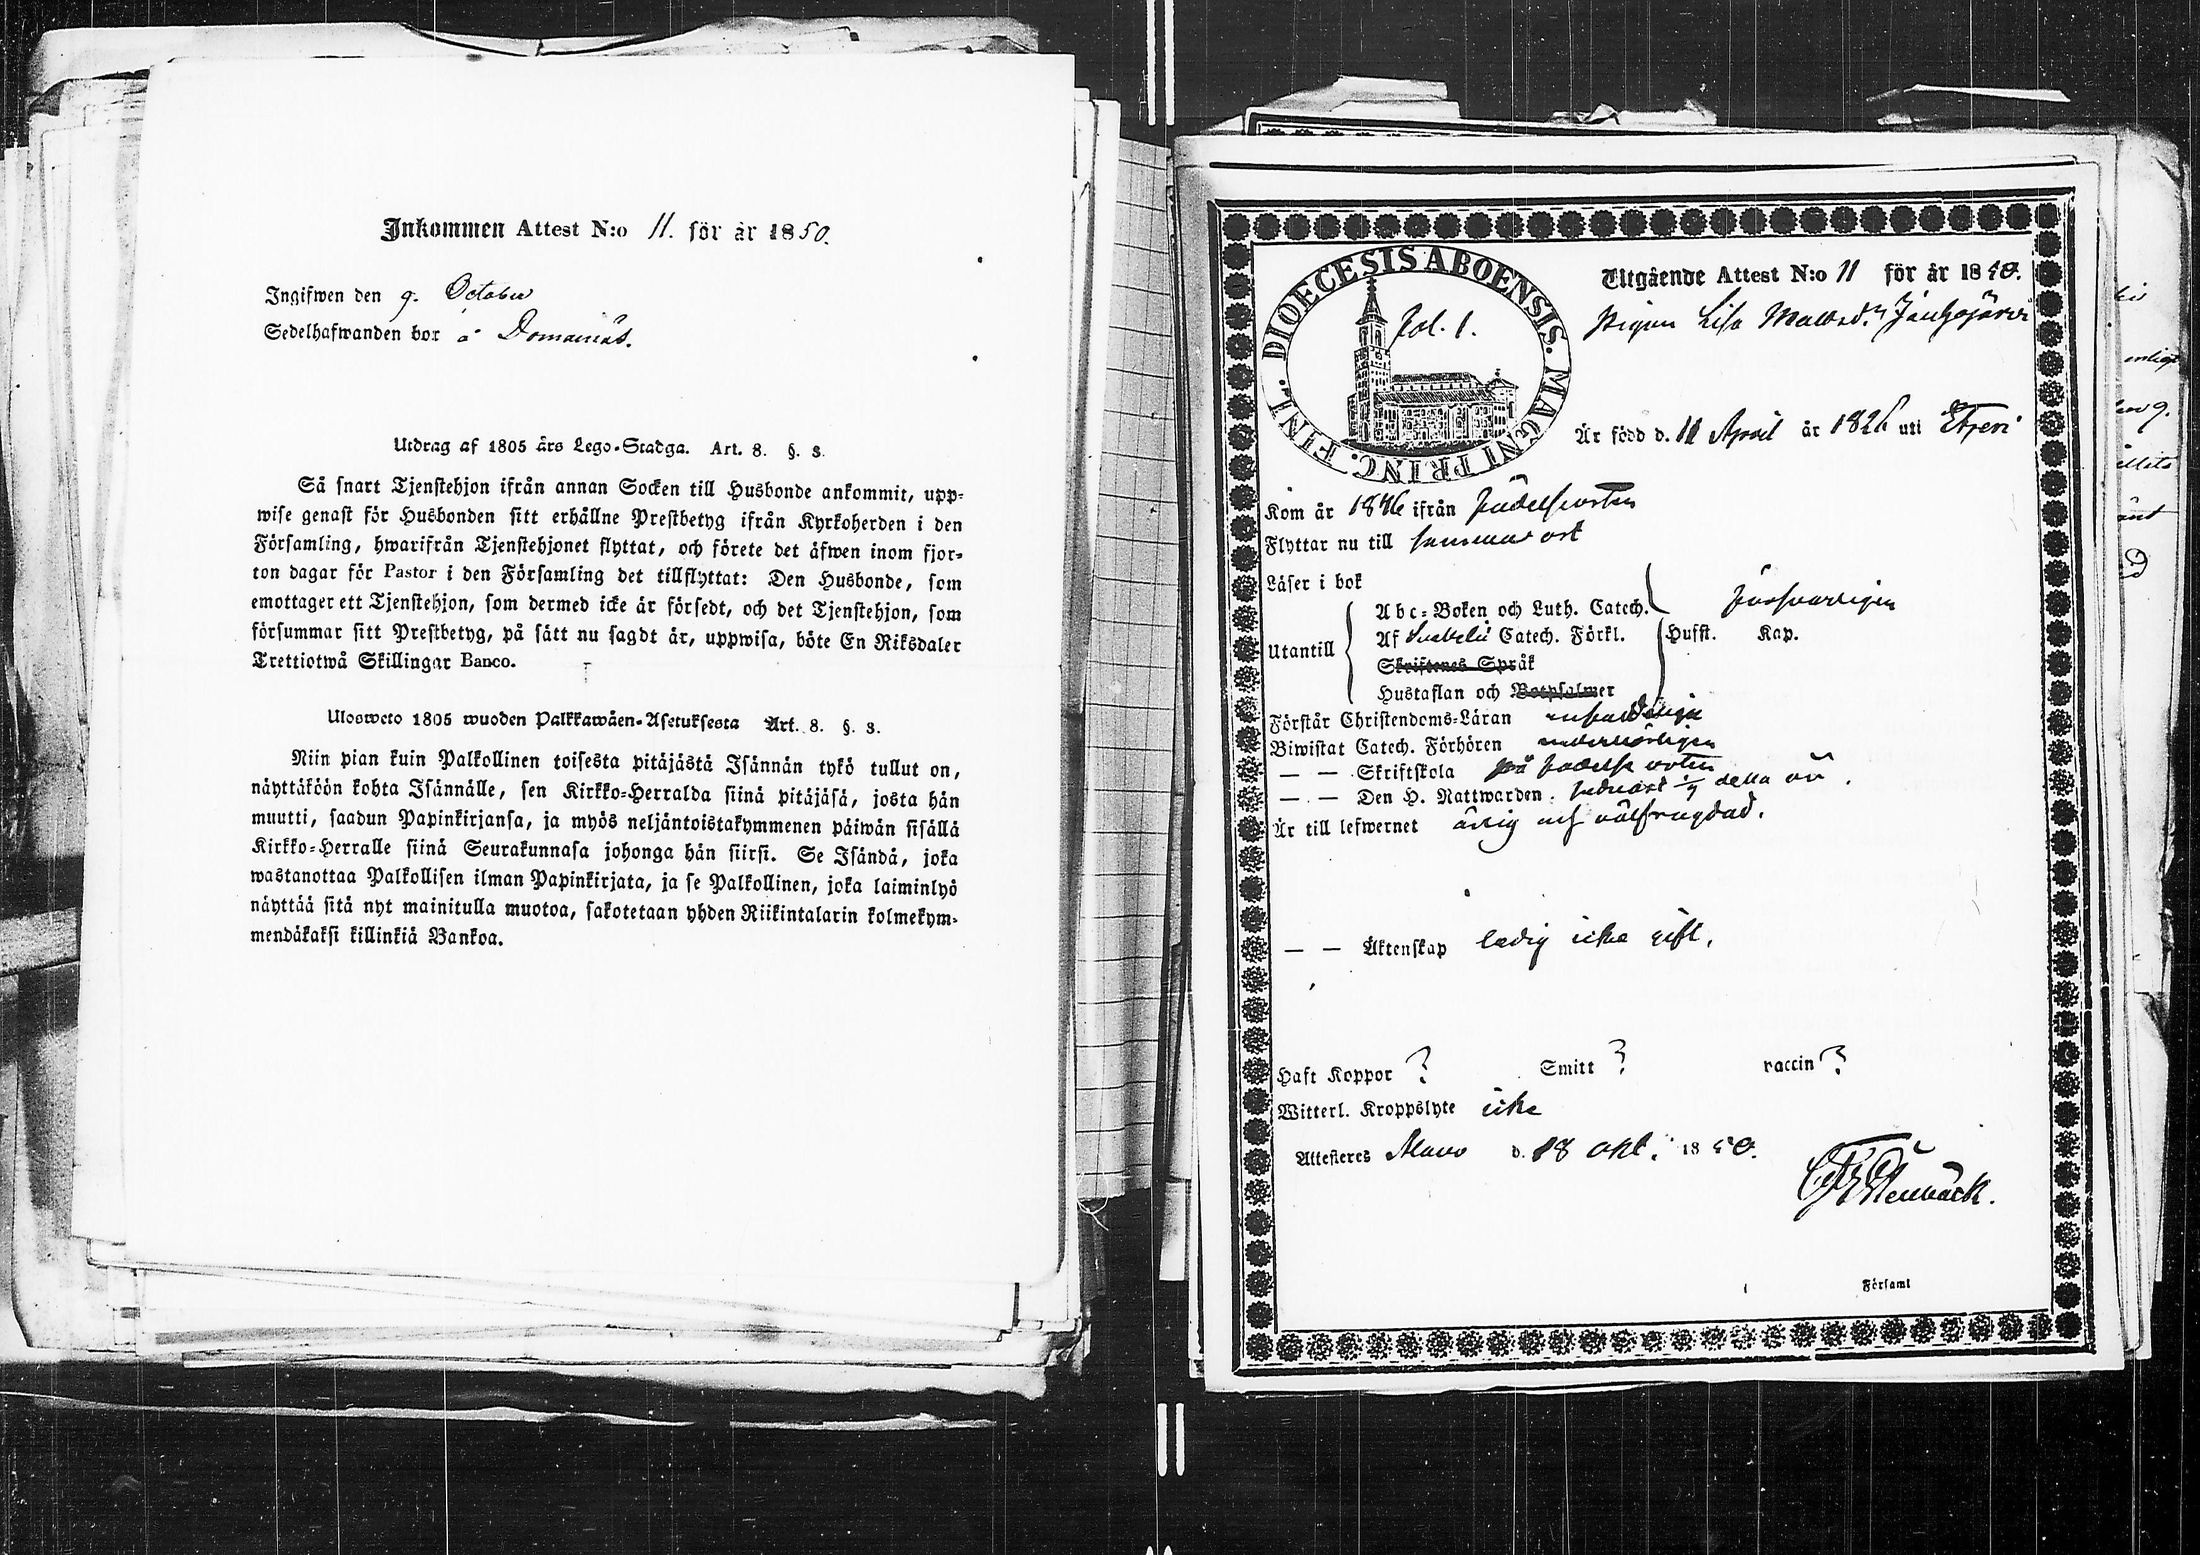 Inkommen Attest N:o 11. för år 1850.
Ingifwen den 9. October
Sedelhafwanden bor å Domarnäs.
Utdrag af 1805 års Lego-Stadga. Art. 8. §. 3.
Så snart Tjenstehjon ifrån annan Socken till Husbonde ankommit, upp-
wise genast för Husbonden sitt erhållne Prestbetyg ifrån Kyrkoherden i den
Församling, hwarifrån Tjenstehjonet flyttat, och förete det äfwen inom fjor-
ton dagar för Pastor i den Församling det tillflyttat: Den Husbonde, som
emottager ett Tjenstehjon, som dermed icke är försedt, och det Tjenstehjon, som
försummar sitt Prestbetyg, på sätt nu sagdt är, uppwisa, böte En Riksdaler
Trettiotwå Skillingar Banco.
Ulosweto 1805 wuoden Palkkawäen-Asetuksesta Art. 8. §. 3.
Niin pian kuin Palkollinen toisesta pitäjästä Isännän tykö tullut on,
näyttäköön kohta Isännälle, sen Kirkko-Herralda siinä pitäjäsä, josta hän
muutti, saadun Papinkirjansa, ja myös neljäntoistakymmenen päiwän sisällä
Kirkko-Herralle siinä Seurakunnasa johonga hän siirsi. Se Isändä, joka
wastanottaa Palkollisen ilman Papinkirjata, ja se Palkollinen, joka laiminlyö
näyttää sitä nyt mainitulla muotoa, sakotetaan yhden Riikintalarin kolmekym-
mendäkaksi killinkiä Bankoa.
DIOECESIS ABOENSIS. MAGNI PRINC. FINL.
fol. 1.
Utgående Attest N:o 11 för år 1850.
Pigan Lisa Mattsd:r
Är född d. 11 April år 1826 uti Etseri
Kom år 1846 ifrån födelseorten
Flyttar nu till samma ort
Läser i bok försvarligen
Utantill
Abc-Boken och Luth. Catech.
Af Svebelii Catech. Förkl. Husst. Kap.
Skriftenes Språk
Hustaflan och Botpsalmer
Förstår Christendoms-Läran enfaldeliga
Biwistat Catech. Förhören
— — Skriftskola på födelse orten
— — Den H. Nattwarden detta år.
Är till lefwernet ärlig och välfrägdad.
— — Äktenskap ledig icke gift.
Haft Koppor ? Smitt ? vaccin ?
Witterl. Kroppslyte icke
Attesteres Alavo d. 18 okt. 1850.
Församl